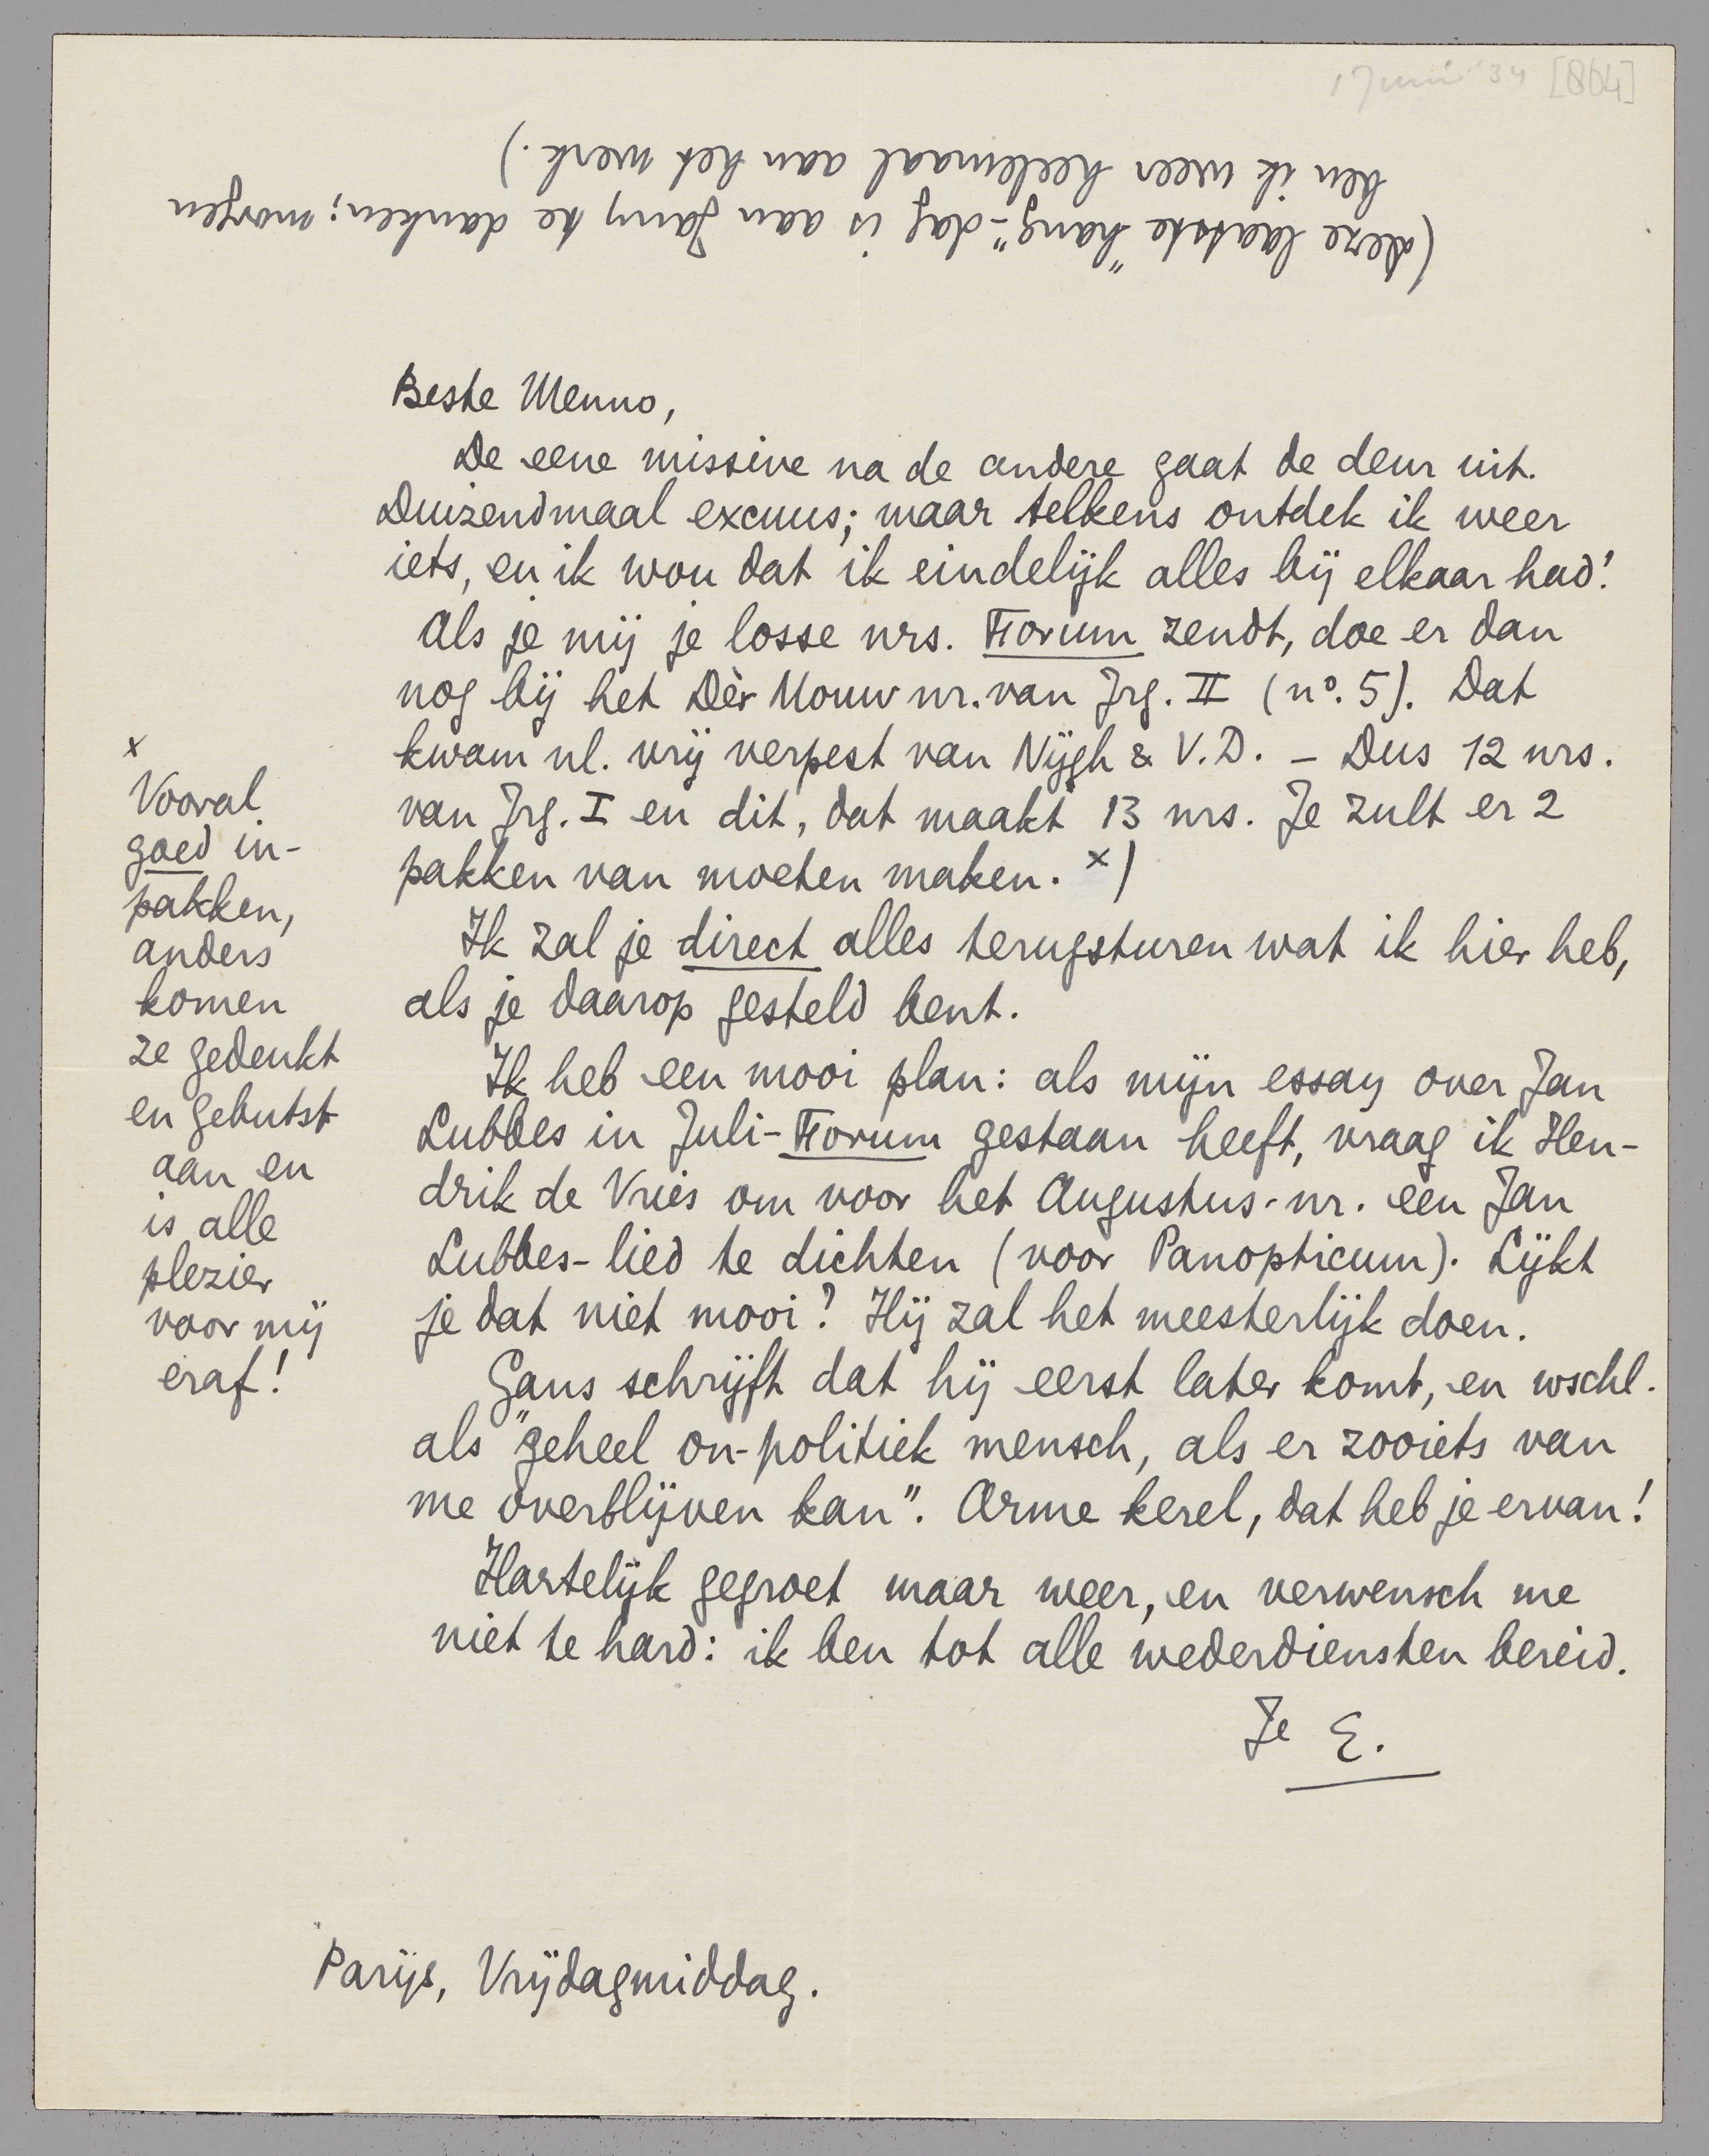 1 Juni '34 [864]
(deze laatste "hang"-dag is aan Jany te danken; morgen
ben ik weer heelemaal aan het werk.)
Beste Menno,
De eene missive na de andere gaat de deur uit.
Duizendmaal excuus; maar telkens ontdek ik weer
iets, en ik wou dat ik eindelijk alles bij elkaar had!
Als je mij je losse nrs. Forum zendt, doe er dan
nog bij het Dèr Mouw nr. van Jrg. II (no. 5). Dat
kwam nl. vrij verpest van Nijgh & V.D. – Dus 12 nrs.
van Jrg. I en dit, dat maakt 13 nrs. Je zult er 2
pakken van moeten maken. x)
Ik zal je direct alles terugsturen wat ik hier heb,
als je daarop gesteld bent.
Ik heb een mooi plan: als mijn essay over Jan
Lubbes in Juli-Forum gestaan heeft, vraag ik Hen-
drik de Vries om voor het Augustus-nr. een Jan
Lubbes-lied te dichten (voor Panopticum). Lijkt
je dat niet mooi? Hij zal het meesterlijk doen.
Gans schrijft dat hij eerst later komt, en wschl.
als "geheel on-politiek mensch, als er zooiets van
me overblijven kan". Arme kerel, dat heb je ervan!
Hartelijk gegroet maar weer, en verwensch me
niet te hard: ik ben tot alle wederdiensten bereid.
Je E.
x
Vooral
goed in-
pakken,
anders
komen
ze gedeukt
en gebutst
aan en
is alle
plezier
voor mij
eraf!
Parijs, Vrijdagmiddag.